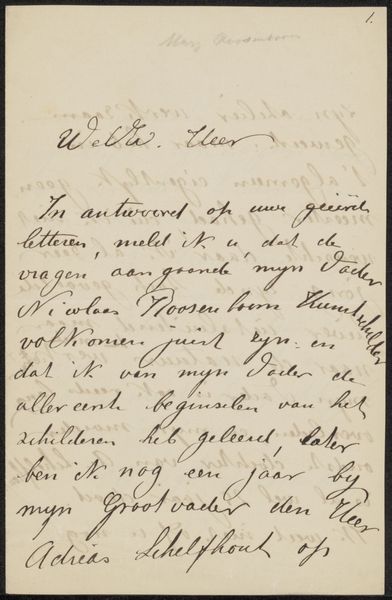 1.
Mary Roosenboom
WelEd. Heer
In antwoord op uwe geëerde
letteren, meld ik u, dat de
vragen, aangaande, myn Vader
Nicolaas Roosenboom Kunstschilder
volkomen juist zyn. en
dat ik van myn Vader de
allereerste beginselen van het
schilderen heb geleerd, later
ben ik nog een jaar by
myn Grootvader den Heer
Adreas Schelfhout op